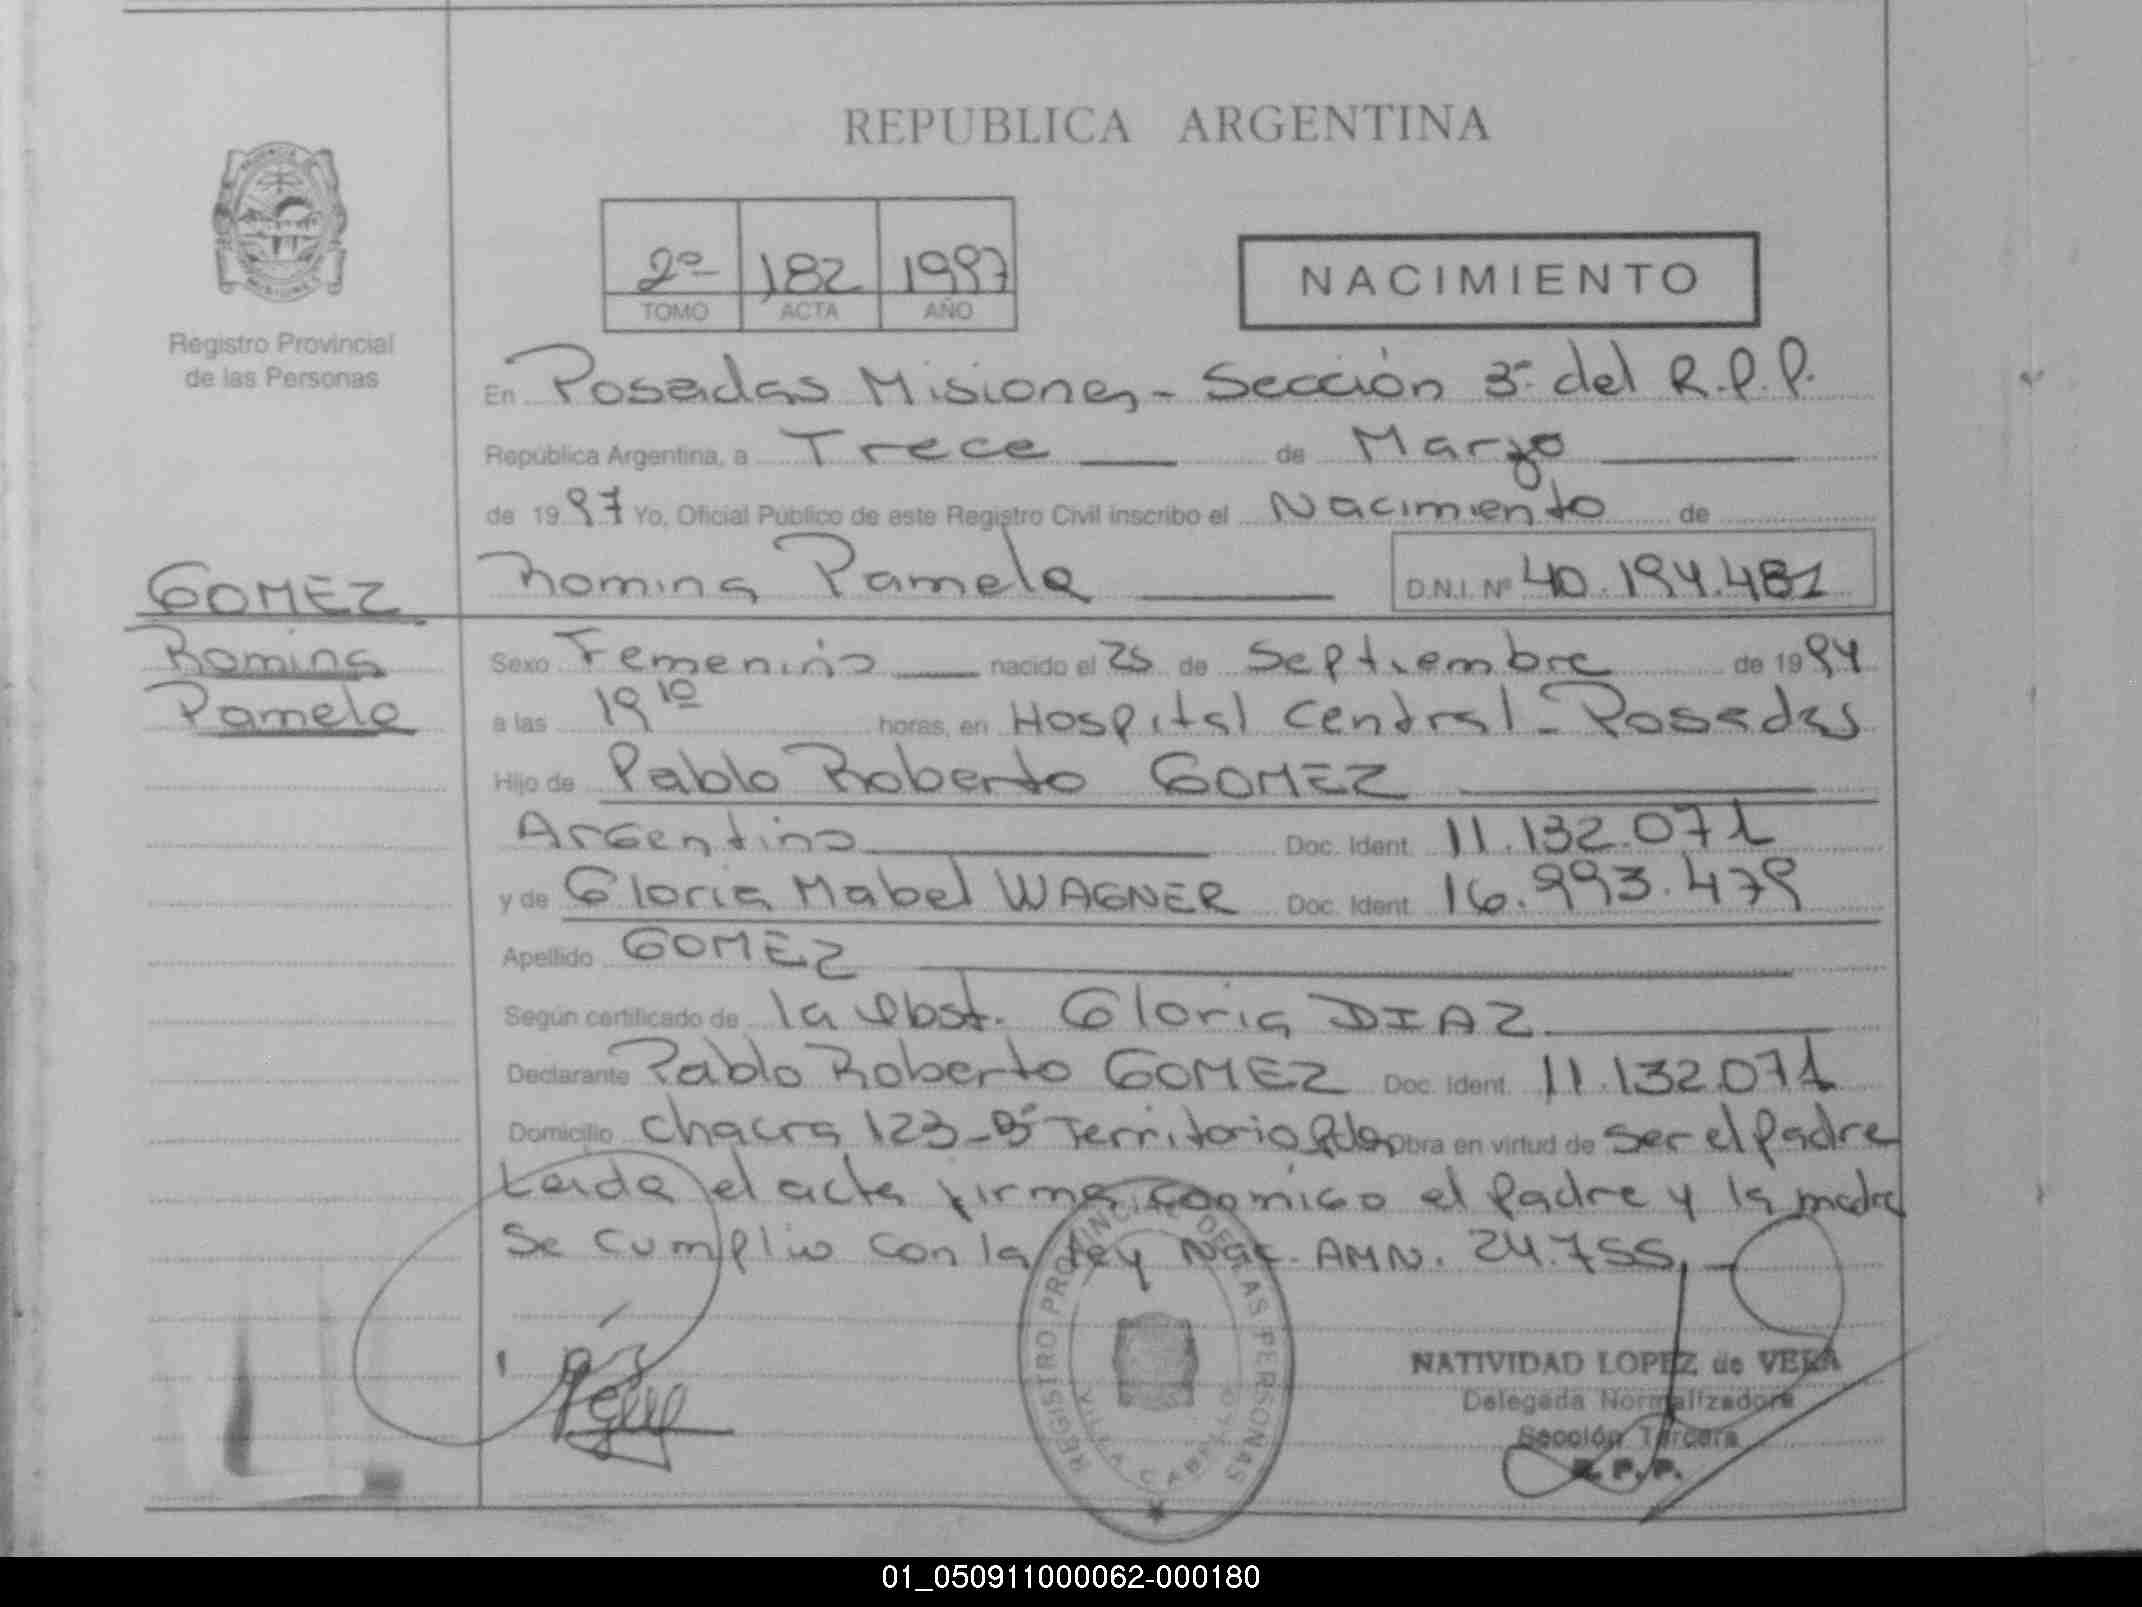 REPUBLICA ARGENTINA
2º 182 1997
TOMO ACTA AÑO
NACIMIENTO
Registro Provincial
de las Personas
En Posadas Misiones - Sección 3ª del R.P.P.
República Argentina, a Trece de Marzo
de 1997 Yo, Oficial Público de este Registro Civil inscribo el Nacimiento de
Romina Pamela D.N.I. Nº 40.194.481
GOMEZ
Romina
Pamela
Sexo Femenino nacido el 25 de Septiembre de 1994
a las 19 10 horas, en Hospital Central - Posadas
Hijo de Pablo Roberto GOMEZ
Argentino Doc. Ident. 11.132.071
y de Gloria Mabel WAGNER Doc. Ident. 16.993.479
Apellido GOMEZ
Según certificado de la Obst. Gloria DIAZ
Declarante Pablo Roberto GOMEZ Doc. Ident. 11.132.071
Domicilio Chacra 123 - Bº Territorio Pdas Obra en virtud de ser el padre
Leida el acta firma conmigo el padre y la madre
Se cumplio con la ley Nac. AMN. 24.755
REGISTRO PROVINCIAL DE LAS PERSONAS
VILLA CABELLO
NATIVIDAD LOPEZ de VERA
Delegada Normalizadora
Sección Tercera
R.P.P.
01_050911000062-000180